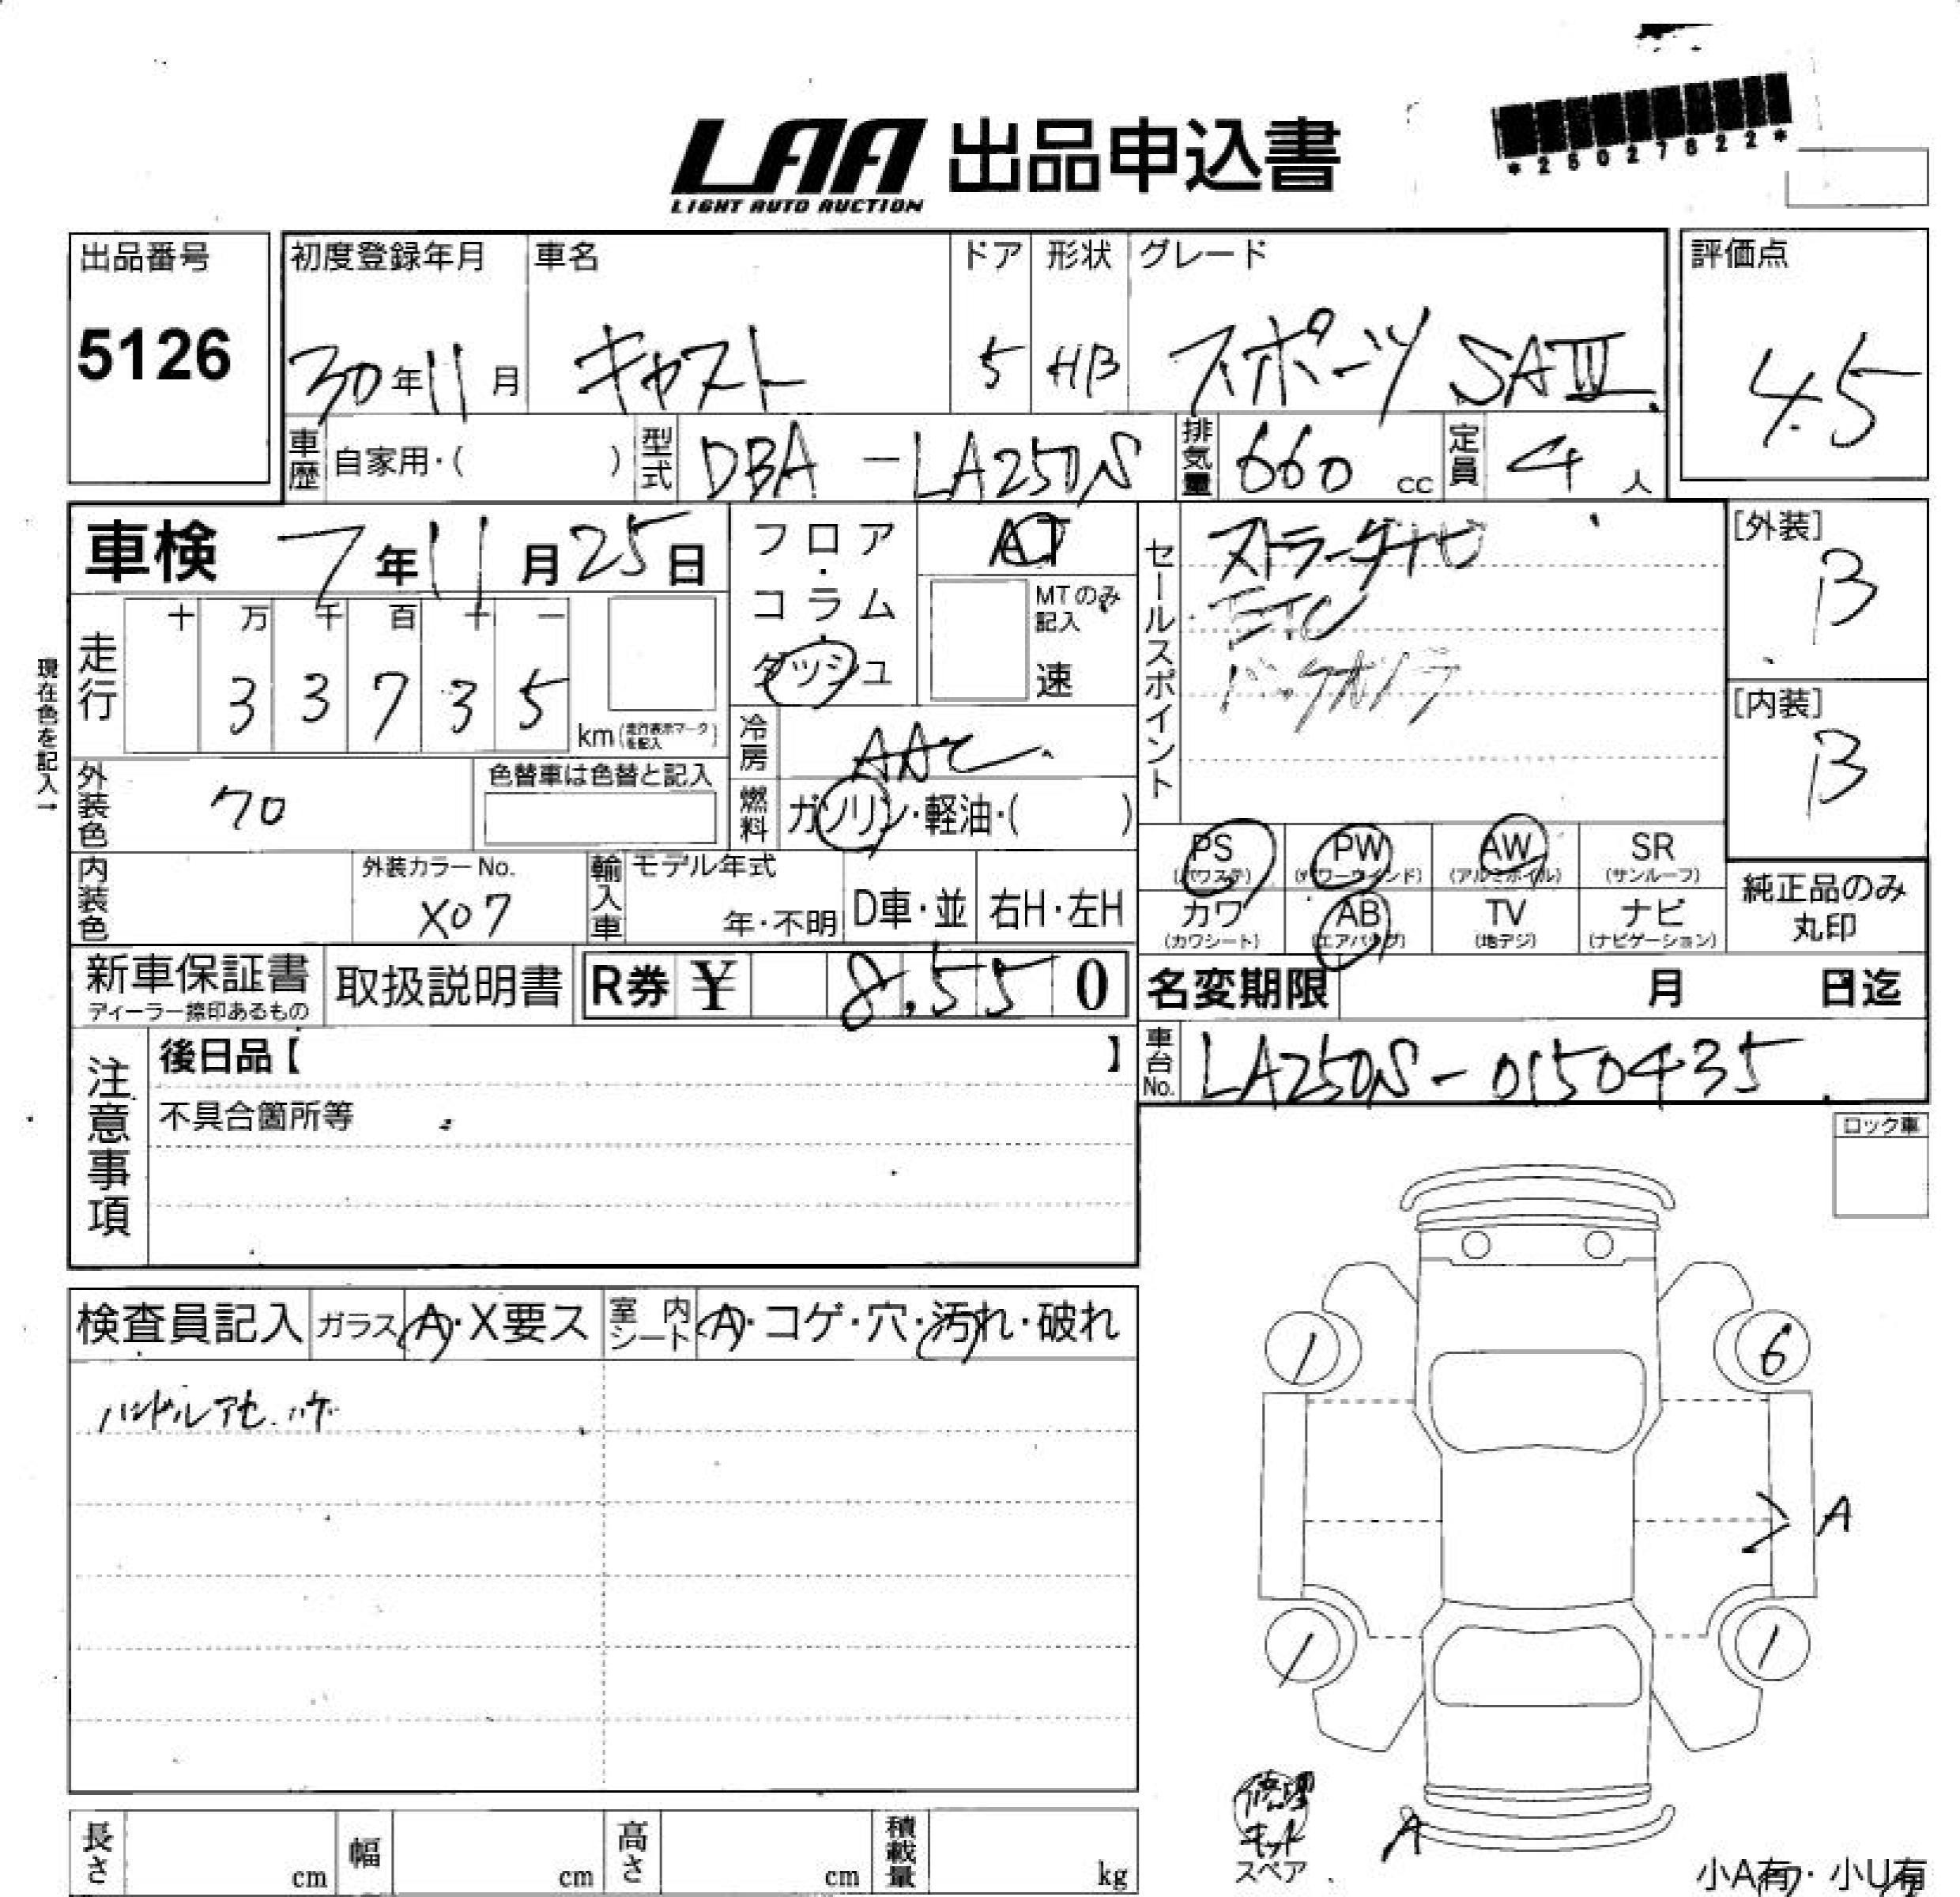 *25027622*
LAA 出品申込書
LIGHT AUTO AUCTION
出品番号 初度登録年月 車名 ドア 形状 グレード 評価点
5126 30年11月 キャスト 5 HB スポーツ SAIII 4.5
車歴 自家用・( ) 型式 DBA-LA250S 排気量 660 cc 定員 4人
車検 7年11月25日 フロア・コラム・ダッシュ AT
MTのみ記入 速
セールスポイント
ストラーダナビ
ETC
バックカメラ
[外装] B
[内装] B
現在色を記入→
走行 十 万 千 百 十 一
3 3 7 3 5 km (走行表示マークを記入)
冷房 AAC
外装色 クロ 色替車は色替と記入
燃料 ガソリン・軽油・( )
PS (パワステ) PW (パワーウインド) AW (アルミホイル) SR (サンルーフ)
カワ (カワシート) AB (エアバッグ) TV (地デジ) ナビ (ナビゲーション)
純正品のみ丸印
内装色 外装カラーNo. X07 輸入車 モデル年式 年・不明 D車・並 右H・左H
新車保証書 ディーラー捺印あるもの 取扱説明書 R券 ¥ 8,550
名変期限 月 日迄
車台No. LA250S-0150435
注意事項
後日品【 】
不具合箇所等
ロック車
検査員記入 ガラス A・X要ス 室内シート A・コゲ・穴・汚れ・破れ
ハンドルアセ.ハゲ
1 6
A
1 1
修理キット
スペア
A
長さ cm 幅 cm 高さ cm 積載量 kg
小A有・小U有